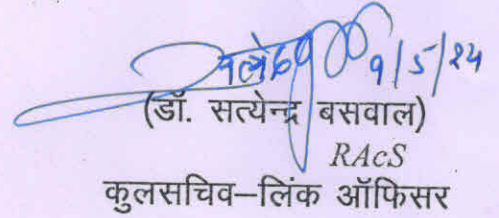 9/5/24
(डॉ. सत्येन्द्र बसवाल)
RAcS
कुलसचिव–लिंक ऑफिसर